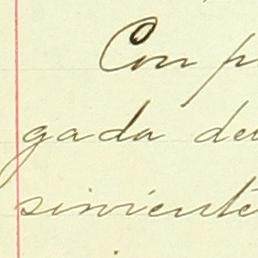 Con p
gada de
sirviente